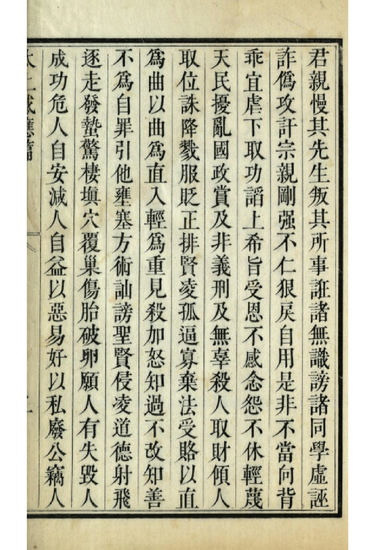 君親慢其先生叛其所事誑諸無識謗諸同學虛誣
詐僞攻訐宗親剛强不仁狠戾自用是非不當向背
乖宜虐下取功諂上希旨受恩不感念怨不休輕蔑
天民擾亂國政賞及非義刑及無辜殺人取財傾人
取位誅降戮服貶正排賢凌孤逼寡棄法受賂以直
爲曲以曲爲直入輕爲重見殺加怒知過不改知善
不爲自罪引他壅塞方術訕謗聖賢侵凌道德射飛
逐走發蟄驚棲塡穴覆巢傷胎破卵願人有失毀人
成功危人自安減人自益以惡易好以私廢公竊人
太上感應篇